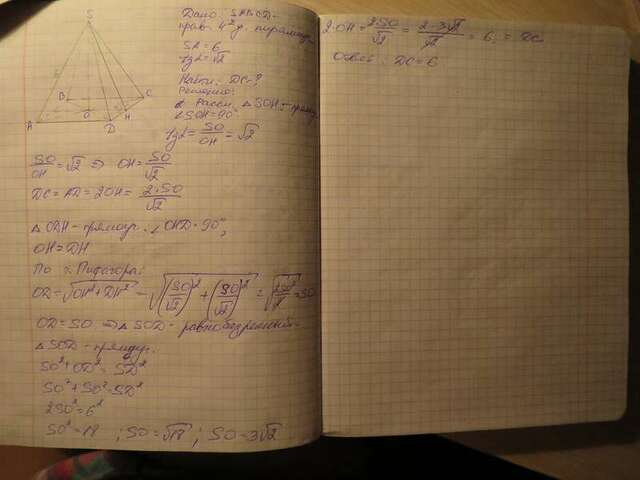 S
B
C
O
H
A
D
Дано: SABCD-
прав. 4х уг. пирамида
SA=6
tgα=√2
Найти: DC-?
Решение:
Рассм. △SOH - прямоуг.
∠SOH=90°
tgα = SO/OH = √2
SO/OH = √2 ⇒ OH = SO/√2
DC = AD = 2OH = 2·SO/√2
△ODH - прямоуг. ∠OHD=90°,
OH = DH
По т. Пифагора:
OD = √(OH²+DH²) = √((SO/√2)² + (SO/√2)²) = √(2SO²/2) = SO
OD = SO ⇒ △SOD - равнобедренный.
△SOD - прямоуг.
SO²+OD² = SD²
SO²+SO²=SD²
2SO²=6²
SO²=18 ; SO=√18 ; SO=3√2
2·OH = 2SO/√2 = 2·3√2/√2 = 6; = DC
Ответ: DC=6